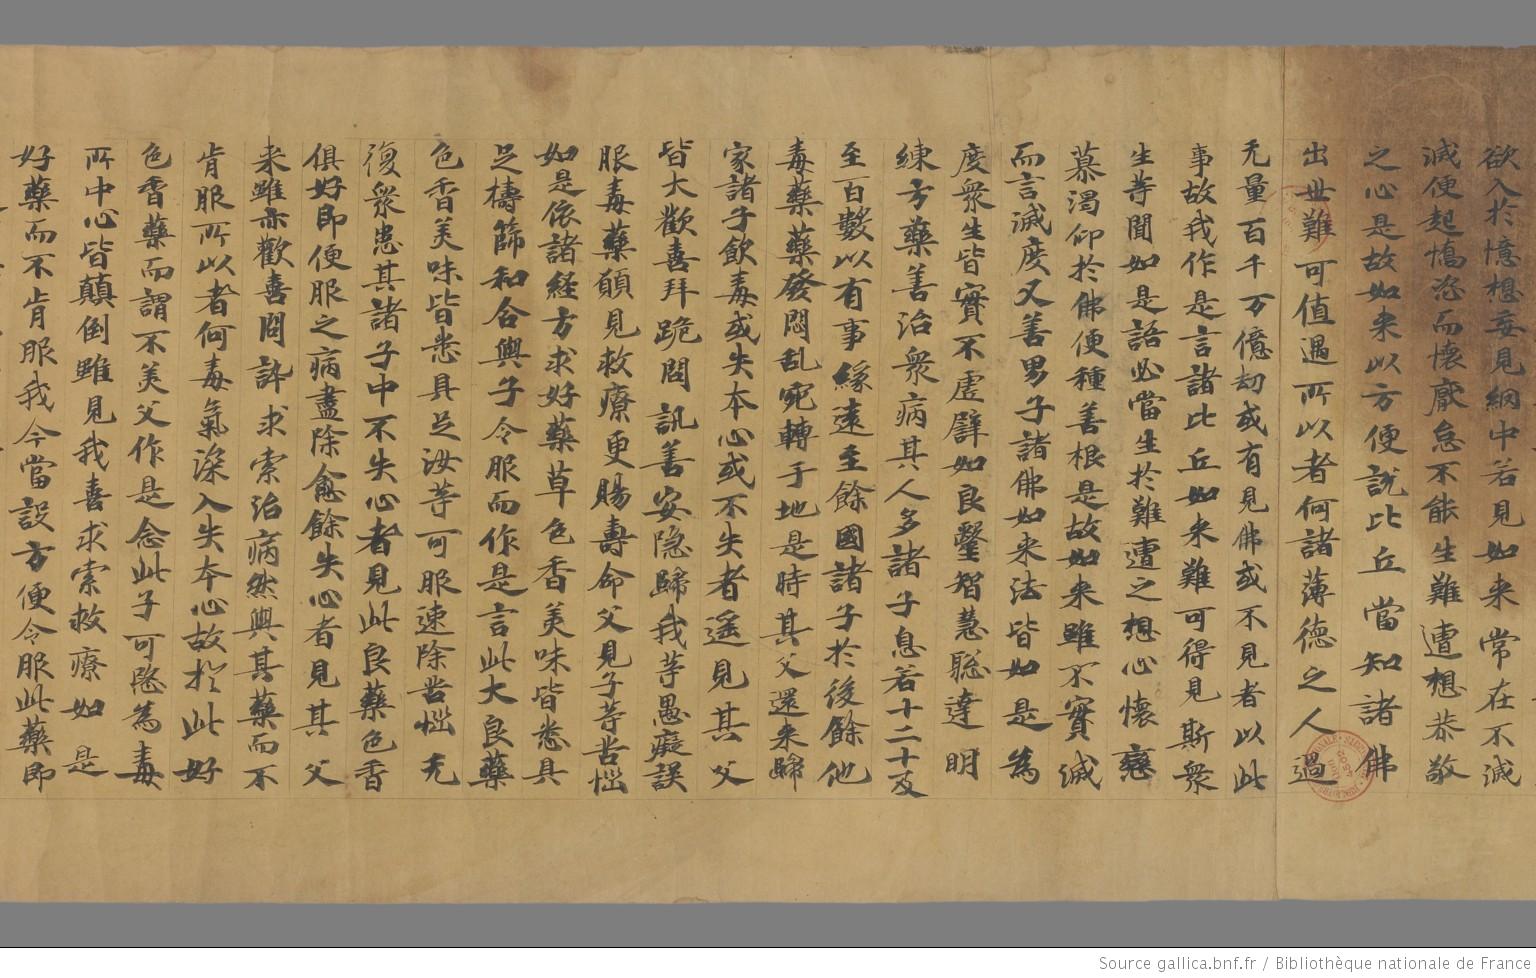 欲入於憶想妄見網中若見如来常在不滅
滅便起憍恣而懷厭怠不能生難遭想恭敬
之心是故如来以方便說比丘當知諸佛
出世難可值遇所以者何諸薄德之人過
无量百千万億劫或有見佛或不見者以此
事故我作是言諸比丘如来難可得見斯衆
生等聞如是語必當生於難遭之想心懷戀
慕渴仰於佛便種善根是故如来雖不實滅
而言滅度又善男子諸佛如来法皆如是為
度衆生皆實不虛譬如良醫智慧聡達明
練方藥善治衆病其人多諸子息若十二十及
至百數以有事緣遠至餘國諸子於後餘他
毒藥藥發悶乱宛轉于地是時其父還来歸
家諸子飲毒或失本心或不失者遥見其父
皆大歡喜拜跪問訊善安隐歸我等愚癡誤
服毒藥願見救療更賜壽命父見子等苦惱
如是依諸経方求好藥草色香美味皆悉具
足檮篩和合與子令服而作是言此大良藥
色香美味皆悉具足汝等可服速除苦惱无
復衆患其諸子中不失心者見此良藥色香
俱好即便服之病盡除愈餘失心者見其父
来雖亦歡喜問訊求索治病然與其藥而不
肯服所以者何毒氣深入失本心故於此好
色香藥而謂不美父作是念此子可愍為毒
所中心皆顛倒雖見我喜求索救療如是
好藥而不肯服我今當設方便令服此藥即
Source gallica.bnf.fr / Bibliothèque nationale de France